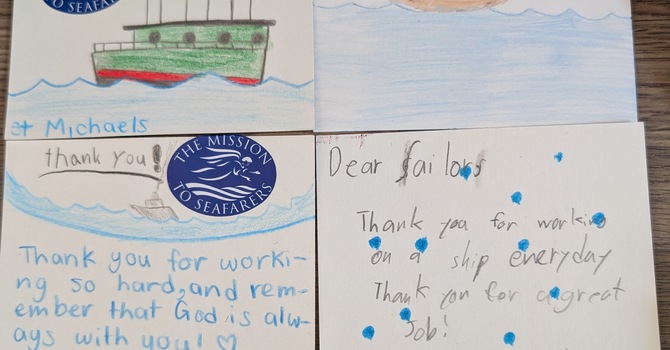 TO SEAFARERS
St Michaels
thank you!
THE MISSION
TO SEAFARERS
Thank you for worki-
ng so hard, and rem-
ember that God is alw-
ays with you! ♡
Dear Sailors
Thank you for working
on a ship everyday
Thank you for a great
Job!